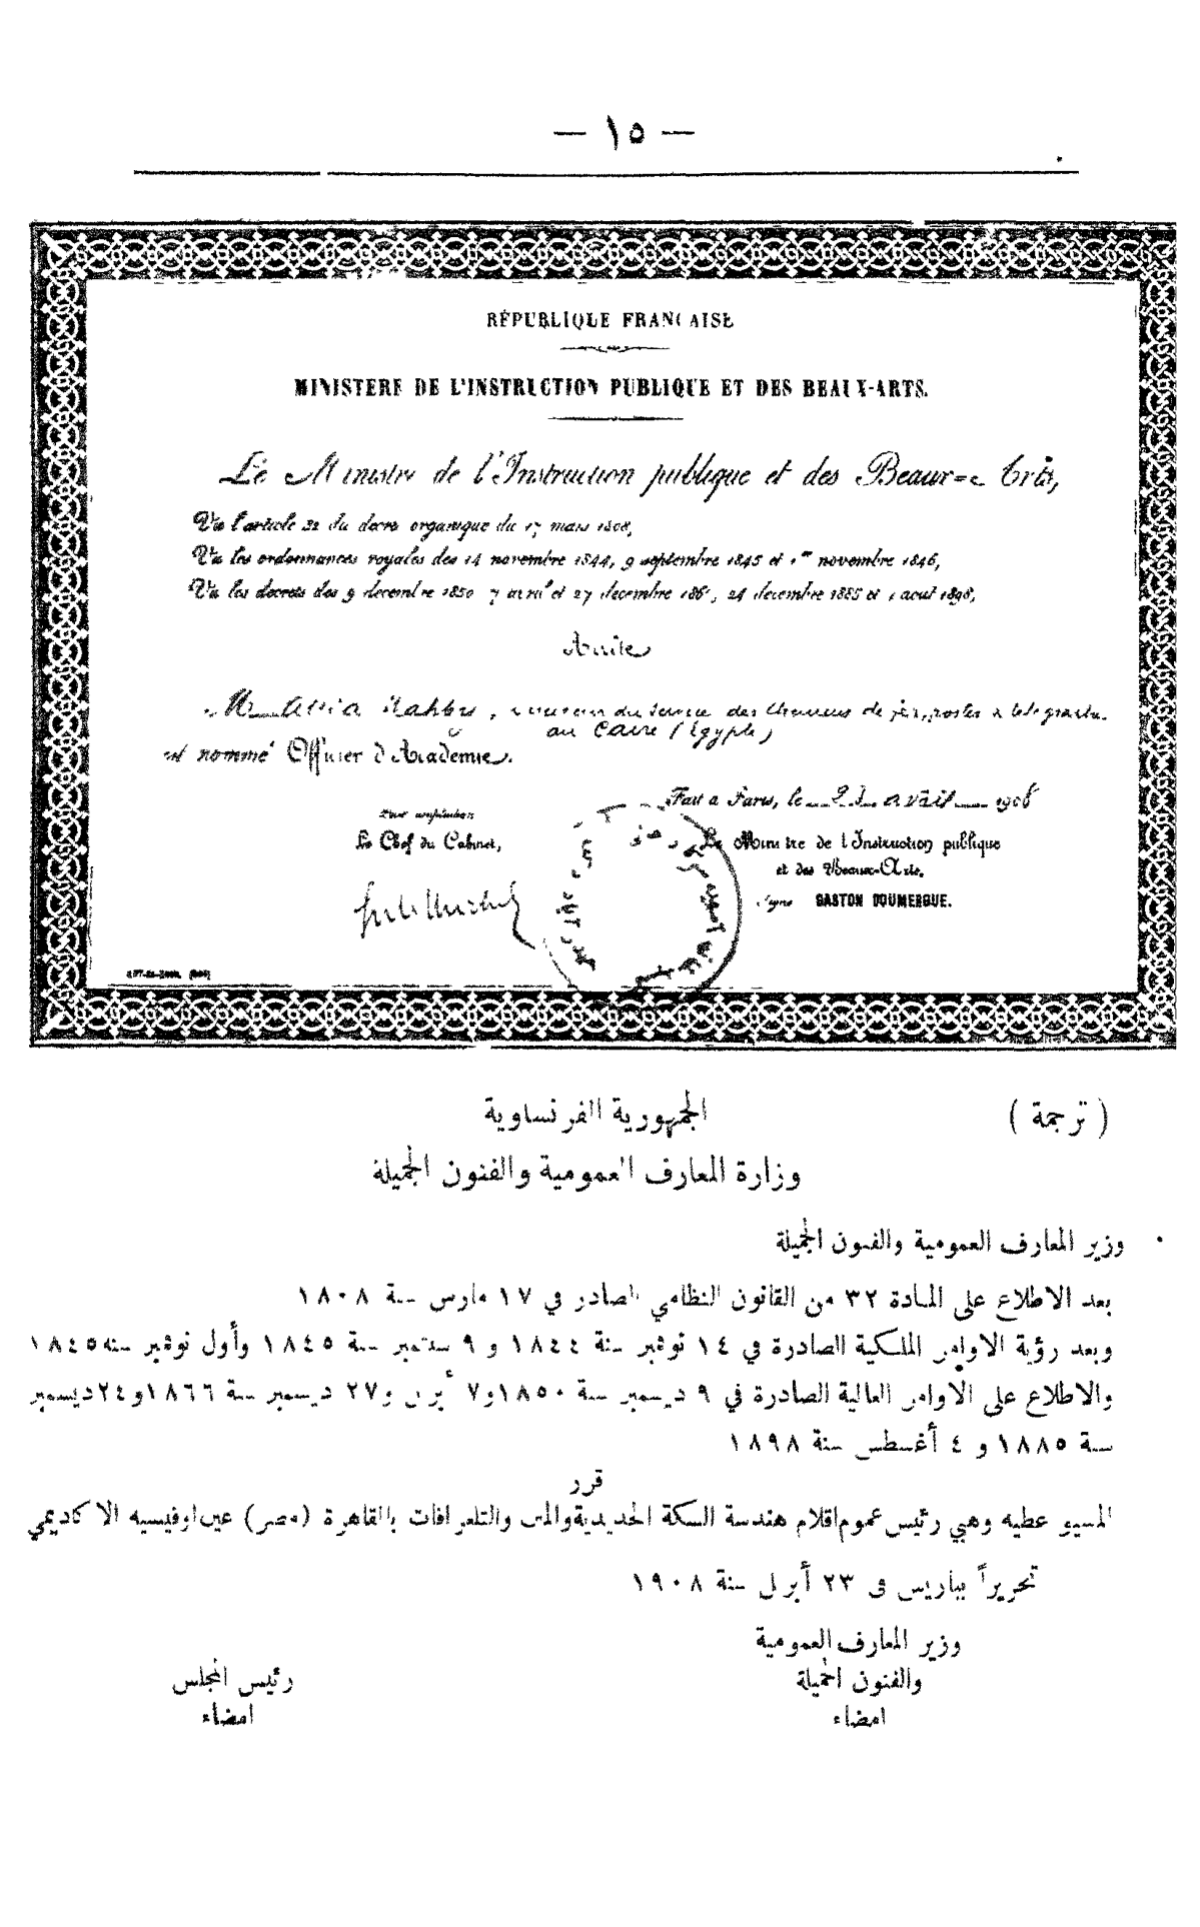 — ١٥ —
RÉPUBLIQUE FRANÇAISE
MINISTERE DE L'INSTRUCTION PUBLIQUE ET DES BEAUX-ARTS.
Le Ministre de l'Instruction publique et des Beaux-Arts,
Vu l'article 32 du decret organique du 17 mars 1808,
Vu les ordonnances royales des 14 novembre 1844, 9 septembre 1845 et 1er novembre 1846,
Vu les decrets des 9 decembre 1850 7 avril et 27 decembre 186 , 24 decembre 1885 et 4 aout 1898,
Arrête
Mr Attia Wahby, du service des Chemins de fer, postes & telegraphes
au Caire (Egypte)
est nommé Officier d'Academie.
Fait a Paris, le 23 avril 1908
Pour ampliation
Le Chef du Cabinet,
Le Ministre de l'Instruction publique
et des Beaux-Arts.
Signé GASTON DOUMERGUE.
( ترجمة )
الجمهورية الفرنساوية
وزارة المعارف العمومية والفنون الجميلة
وزير المعارف العمومية والفنون الجميلة
بعد الاطلاع على المادة ٣٢ من القانون النظامي الصادر في ١٧ مارس سنة ١٨٠٨
وبعد رؤية الاوامر الملكية الصادرة في ١٤ نوفمبر سنة ١٨٤٤ و ٩ سبتمبر سنة ١٨٤٥ وأول نوفمبر سنه ١٨٤٥
والاطلاع على الاوامر العالية الصادرة في ٩ ديسمبر سنة ١٨٥٠ و٧ أبريل و٢٧ ديسمبر سنة ١٨٦٦ و٢٤ ديسمبر
سنة ١٨٨٥ و ٤ أغسطس سنة ١٨٩٨
قرر
المسيو عطيه وهبي رئيس عموم اقلام هندسة السكة الحديدية والتلغرافات بالقاهرة (مصر) عين اوفيسيه الاكاديمي
تحريراً بباريس في ٢٣ أبريل سنة ١٩٠٨
وزير المعارف العمومية
والفنون الجميلة
امضاء
رئيس المجلس
امضاء